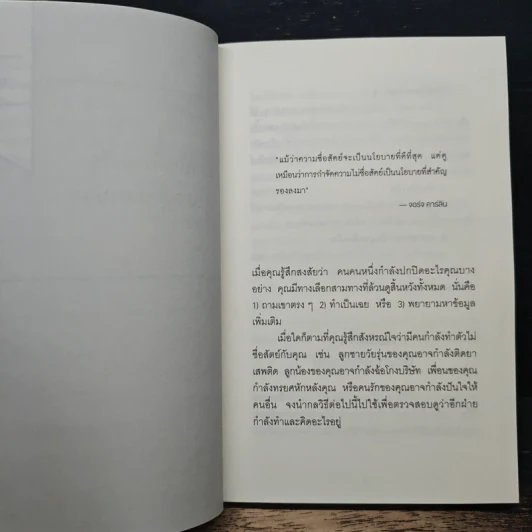 "แม้ว่าความซื่อสัตย์จะเป็นนโยบายที่ดีที่สุด แต่ดู
เหมือนว่าการกำจัดความไม่ซื่อสัตย์เป็นนโยบายที่สำคัญ
รองลงมา"
— จอร์จ คาร์ลิน
เมื่อคุณรู้สึกสงสัยว่า คนคนหนึ่งกำลังปกปิดอะไรคุณบาง
อย่าง คุณมีทางเลือกสามทางที่ล้วนดูสิ้นหวังทั้งหมด นั่นคือ
1) ถามเขาตรง ๆ 2) ทำเป็นเฉย หรือ 3) พยายามหาข้อมูล
เพิ่มเติม
เมื่อใดก็ตามที่คุณรู้สึกสังหรณ์ใจว่ามีคนกำลังทำตัวไม่
ซื่อสัตย์กับคุณ เช่น ลูกชายวัยรุ่นของคุณอาจกำลังติดยา
เสพติด ลูกน้องของคุณอาจกำลังฉ้อโกงบริษัท เพื่อนของคุณ
กำลังทรยศหักหลังคุณ หรือคนรักของคุณอาจกำลังปันใจให้
คนอื่น จงนำกลวิธีต่อไปนี้ไปใช้เพื่อตรวจสอบดูว่าอีกฝ่าย
กำลังทำและคิดอะไรอยู่